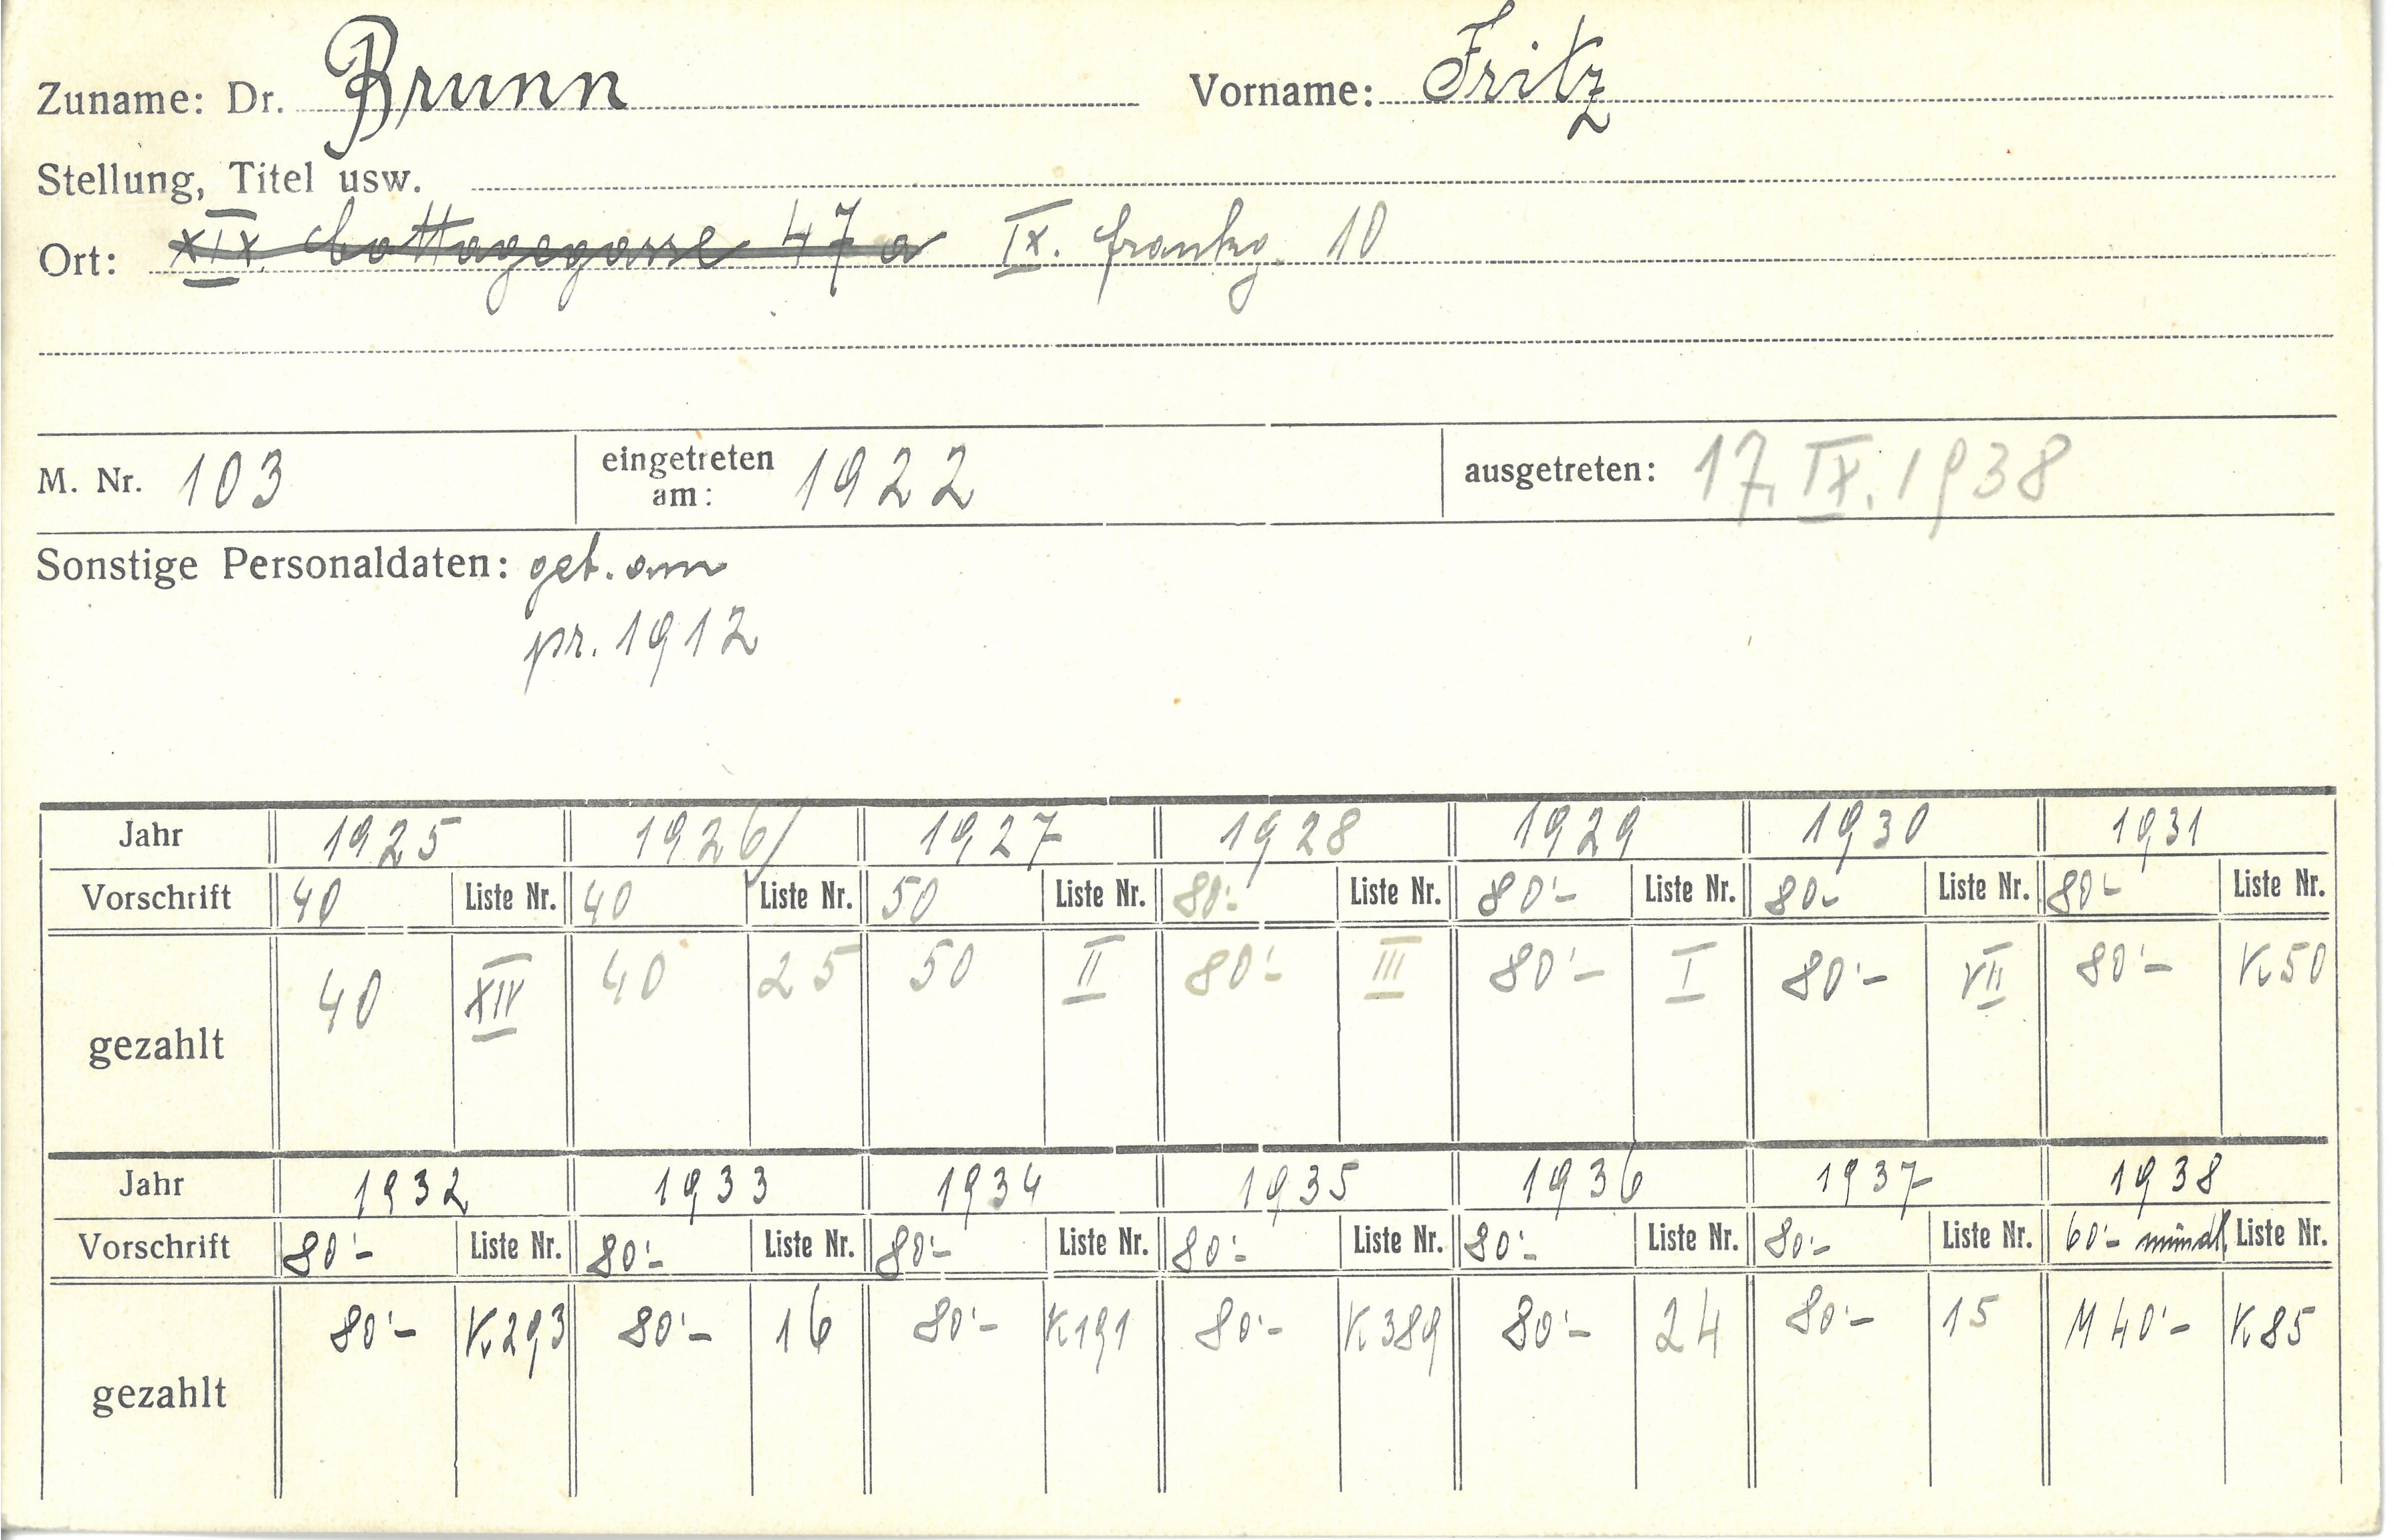 Zuname: Dr. Brunn Vorname: Fritz
Stellung, Titel usw.
Ort: XIX. Cottagegasse 47 a IX. Frankg. 10
M. Nr. 103 eingetreten am: 1922 ausgetreten: 17. IX. 1938
Sonstige Personaldaten: geb. am
pr. 1912
Jahr 1925 1926/ 1927 1928 1929 1930 1931
Vorschrift 40 Liste Nr. 40 Liste Nr. 50 Liste Nr. 80'- Liste Nr. 80'- Liste Nr. 80- Liste Nr. 80'- Liste Nr.
gezahlt 40 XIV 40 25 50 II 80'- III 80'- I 80'- VII 80'- K50
Jahr 1932 1933 1934 1935 1936 1937 1938
Vorschrift 80'- Liste Nr. 80'- Liste Nr. 80'- Liste Nr. 80'- Liste Nr. 80'- Liste Nr. 80'- Liste Nr. 60'- mündl. Liste Nr.
gezahlt 80'- K293 80'- 16 80'- K191 80'- K389 80'- 24 80'- 15 M 40'- K85